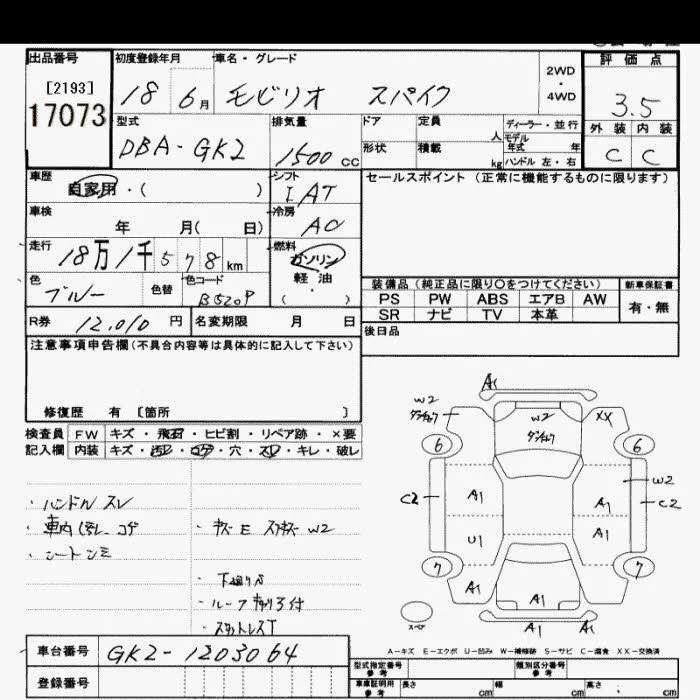 出品番号 初度登録年月 車名・グレード 評価点
[2193]
17073
18 6月 モビリオ スパイク 2WD・4WD 3.5
型式 排気量 ドア 定員 人 ディーラー・並行 外装 内装
DBA-GK2 1500cc 形状 積載 kg モデル年式 年 C C
ハンドル 左・右
車歴 シフト セールスポイント(正常に機能するものに限ります)
自家用・( ) IAT
車検 冷房
年 月( 日) AC
走行 燃料
18万1千578km ガソリン
軽油
・
( )
色 色替 色コード 装備品(純正品に限り○をつけてください) 新車保証書
ブルー B520P PS PW ABS エアB AW 有・無
SR ナビ TV 本革
R券 12,010円 名変期限 月 日 後日品
注意事項申告欄(不具合内容等は具体的に記入して下さい)
修復歴 有 [箇所 ]
検査員 FW キズ・飛石・ヒビ割・リペア跡・×要
記入欄 内装 キズ・汚レ・コゲ・穴・スレ・キレ・破レ
A1
W2 W2 XX
6 6
W2
C2 A1 A1 C2
U1 A1
7 7
A1 A1
スペア A1 A1
・ハンドルスレ
・車内汚レ コゲ ・キズE スリキズW2
・下廻りS
・スタットレスT
A-キズ E-エクボ U-凹み W-補修跡 S-サビ C-腐食 XX-交換済
車台番号 GK2-1203064
型式指定番号 参考 類別区分番号 参考
登録番号 車庫証明用 参考 長さ cm 幅 cm 高さ cm